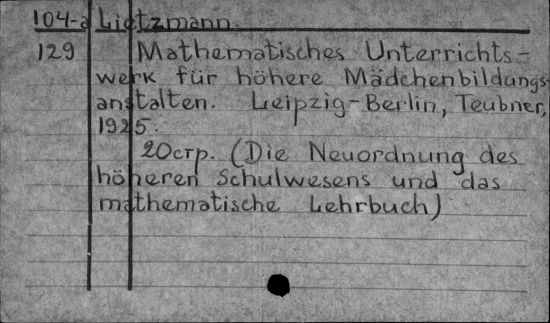 104-a Lietzmann.
129 Mathematisches Unterrichts-
werk für höhere Mädchenbildungs-
anstalten. Leipzig-Berlin, Teubner,
1925.
20стр. (Die Neuordnung des
höheren Schulwesens und das
mathematische Lehrbuch)